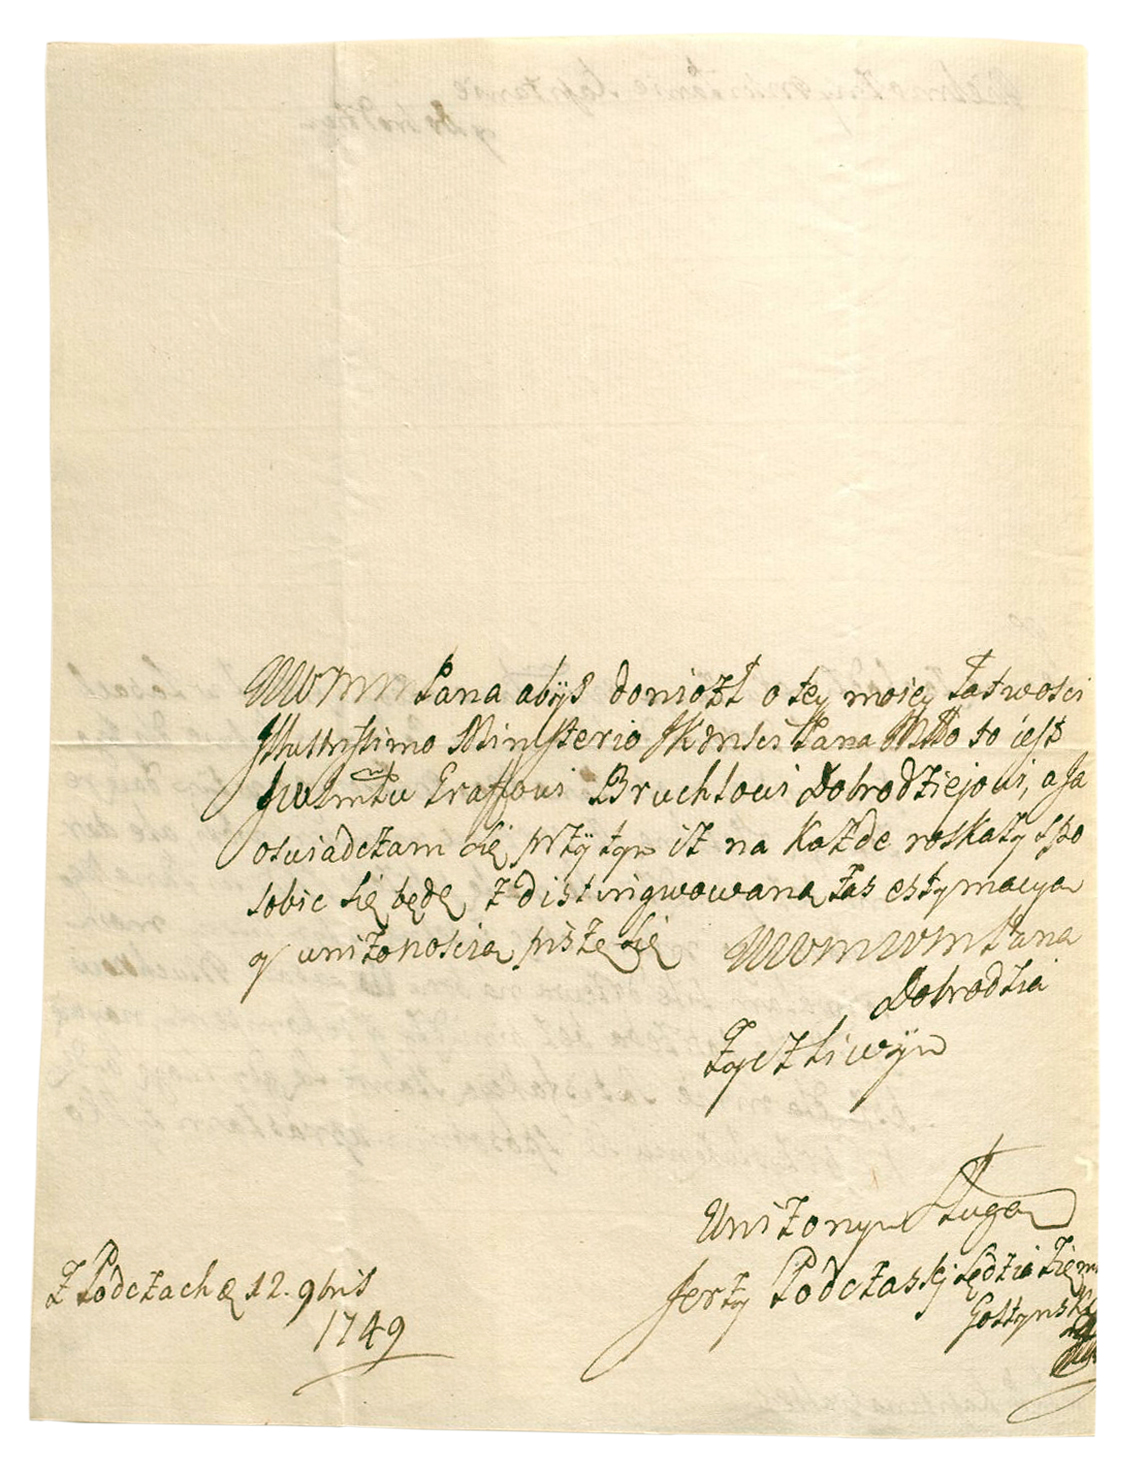 WMM Pana abÿs doniozł o tey moiey łatwości
Illustrissimo Ministerio Pana to iest
Graffowi Bruchlowi Dobrodziejowi, a Ja
oswiadczam się przÿ tym iz na każde roskazy spo
sobie się będę z distingwowaną zas estymacyą
y unizonoscią piszę się WMMWM Pana
Dobrodzia
zyczliwÿm
Unizonym Sługą
Jerzy Podczaski sędzia Ziem
Gostynski
z Podczachę 12. 9bris
1749